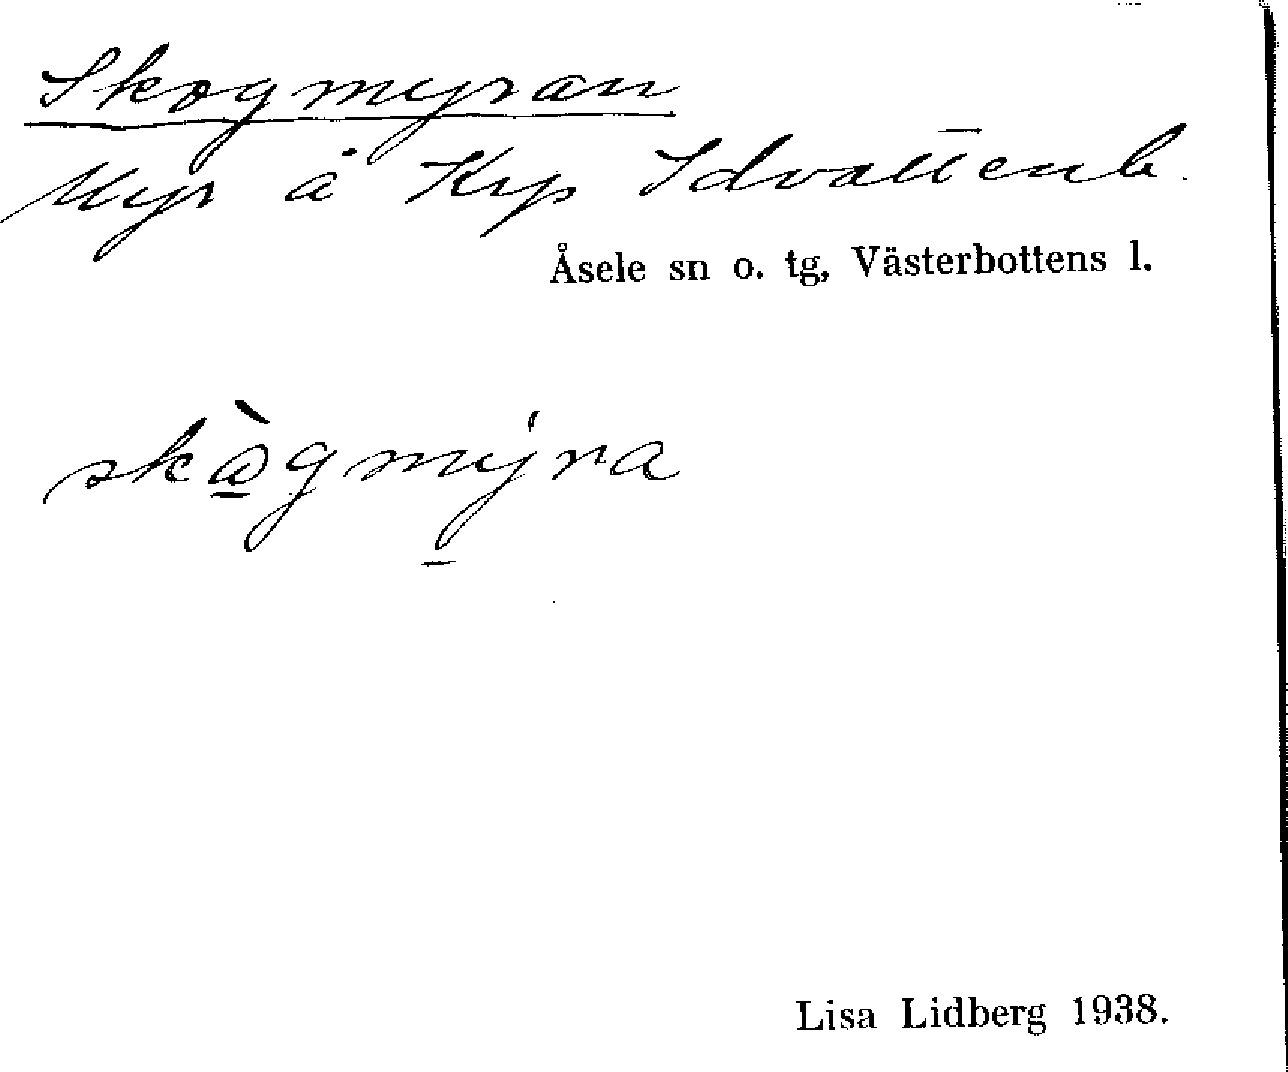 Skogmyran
Myr å Krp Idvattenb.
Åsele sn o. tg, Västerbottens l.
skògmýra
Lisa Lidberg 1938.